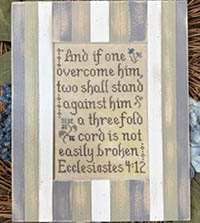 And if one
overcome him,
two shall stand
against him
a threefold
cord is not
easily broken
Ecclesiastes 4:12